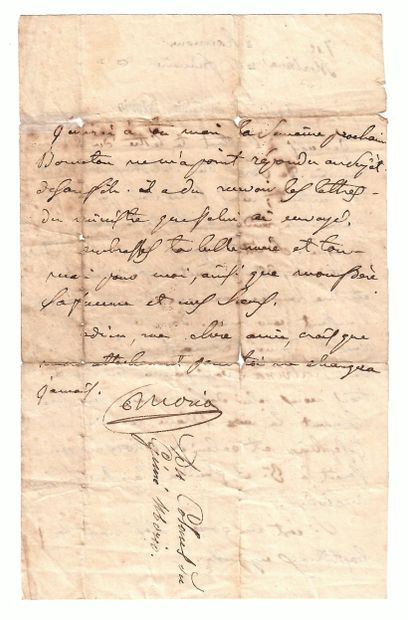 à ton mari la semaine prochain
ne m'a point répondu au sujet
de son fils. il a du recevoir les lettres
du ministre que je lui ai envoyé.
embrasses ta belle mere et ton
mari pour moi, ainsi que mon frere
sa femme et mes sœurs.
adieu, ma chere amie, crois que
mon attachement pour toi ne changera
jamais.
Morio
Du Colonel du
Génie Morio.